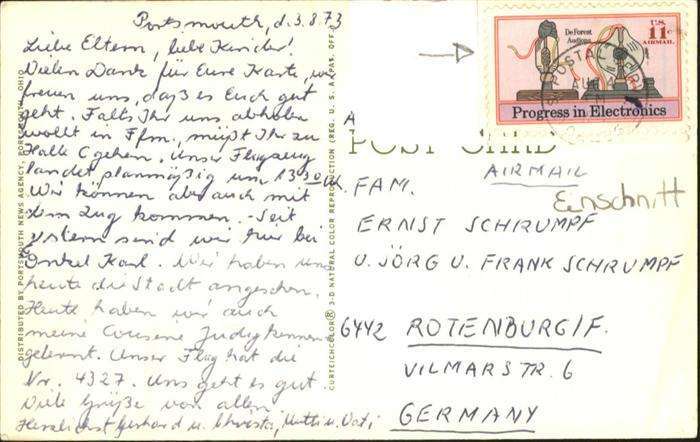 Portsmouth, d. 3.8.73
Liebe Eltern, liebe Kinder!
Vielen Dank für Eure Karte, wir
freuen uns, daß es Euch gut
geht. Falls Ihr uns abholen
wollt in Ffm., müßt Ihr zu
Halle C gehen. Unser Flugzeug
landet planmäßig um 13 30
Wir können aber auch mit
dem Zug kommen. - Seit
gestern sind wir hier bei
Onkel Karl. Wir haben uns
heute die Stadt angesehen.
Heute haben wir auch
meine Cousine Judy kennen
gelernt. Unser Flug hat die
Nr. 4327. Uns geht es gut.
Viele Grüße von allen
Herzlichst Gerhard u. Christa, Mutti u. Vati
DISTRIBUTED BY PORTSMOUTH NEWS AGENCY, PORTSMOUTH, OHIO
CURTEICHCOLOR® 3-D NATURAL COLOR REPRODUCTION (REG. U. S. A. PAT. OFF.)
De Forest
Audions
U.S.
11c
AIRMAIL
Progress in Electronics
POST CARD
AIRMAIL
Einschnitt
FAM.
ERNST SCHRUMPF
U. JÖRG U. FRANK SCHRUMPF
6442 ROTENBURG/F.
VILMARSTR. 6
GERMANY